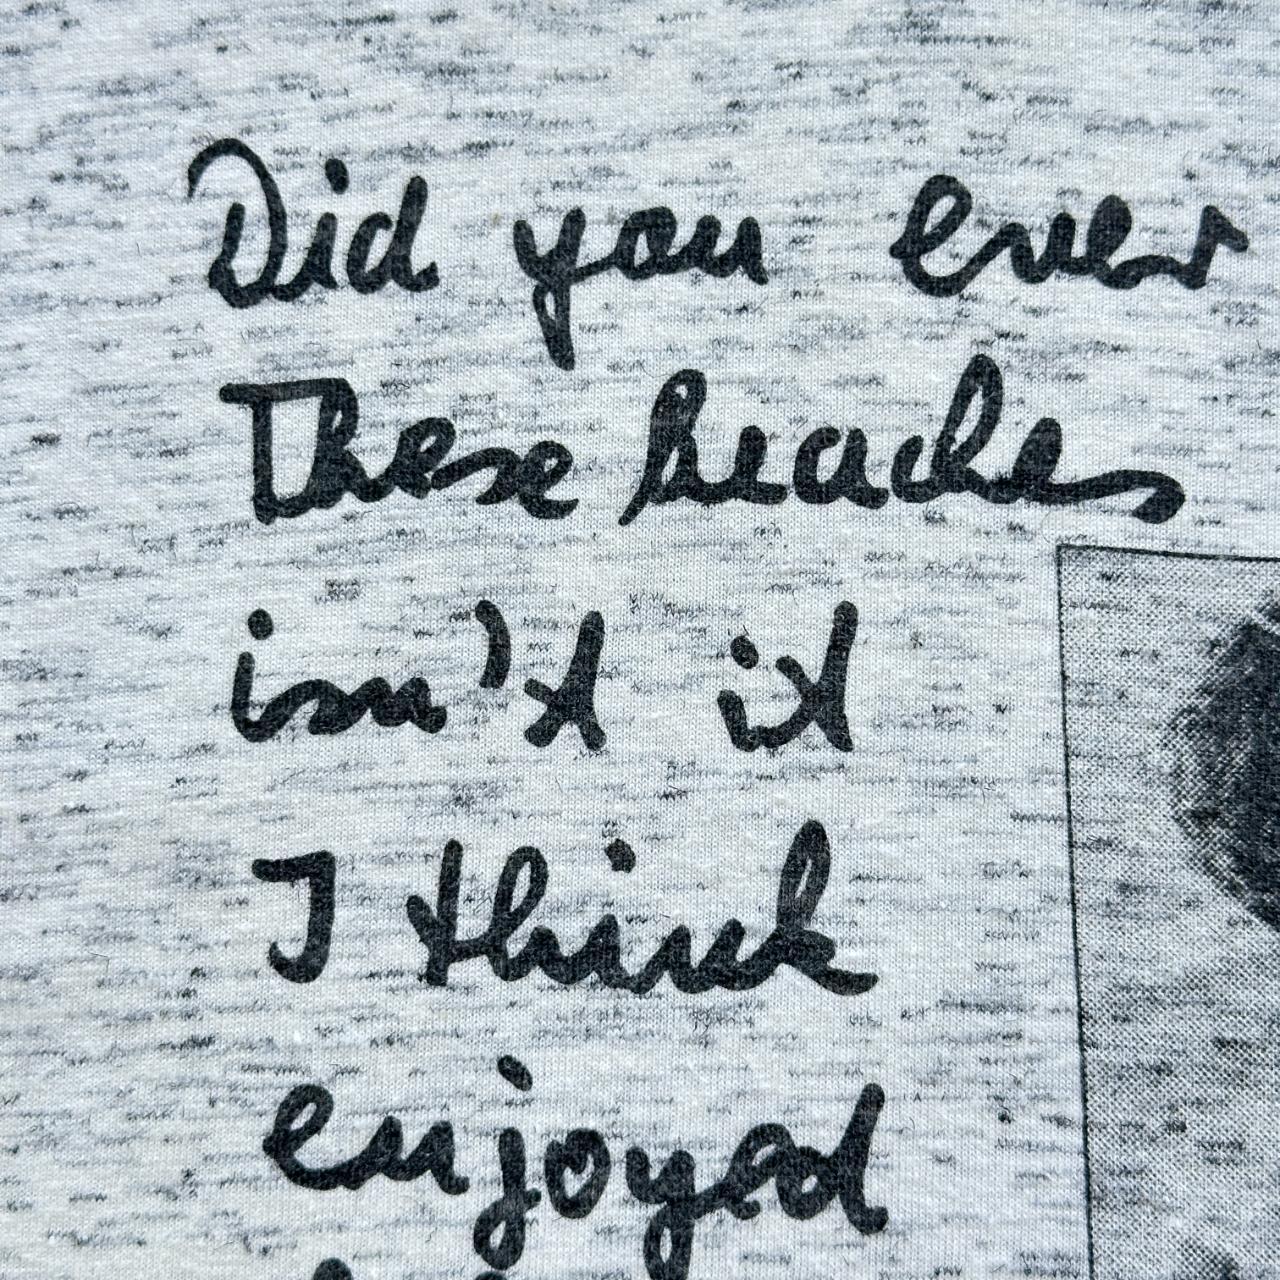 Did you ever
These beaches
isn't it
I think
enjoyed